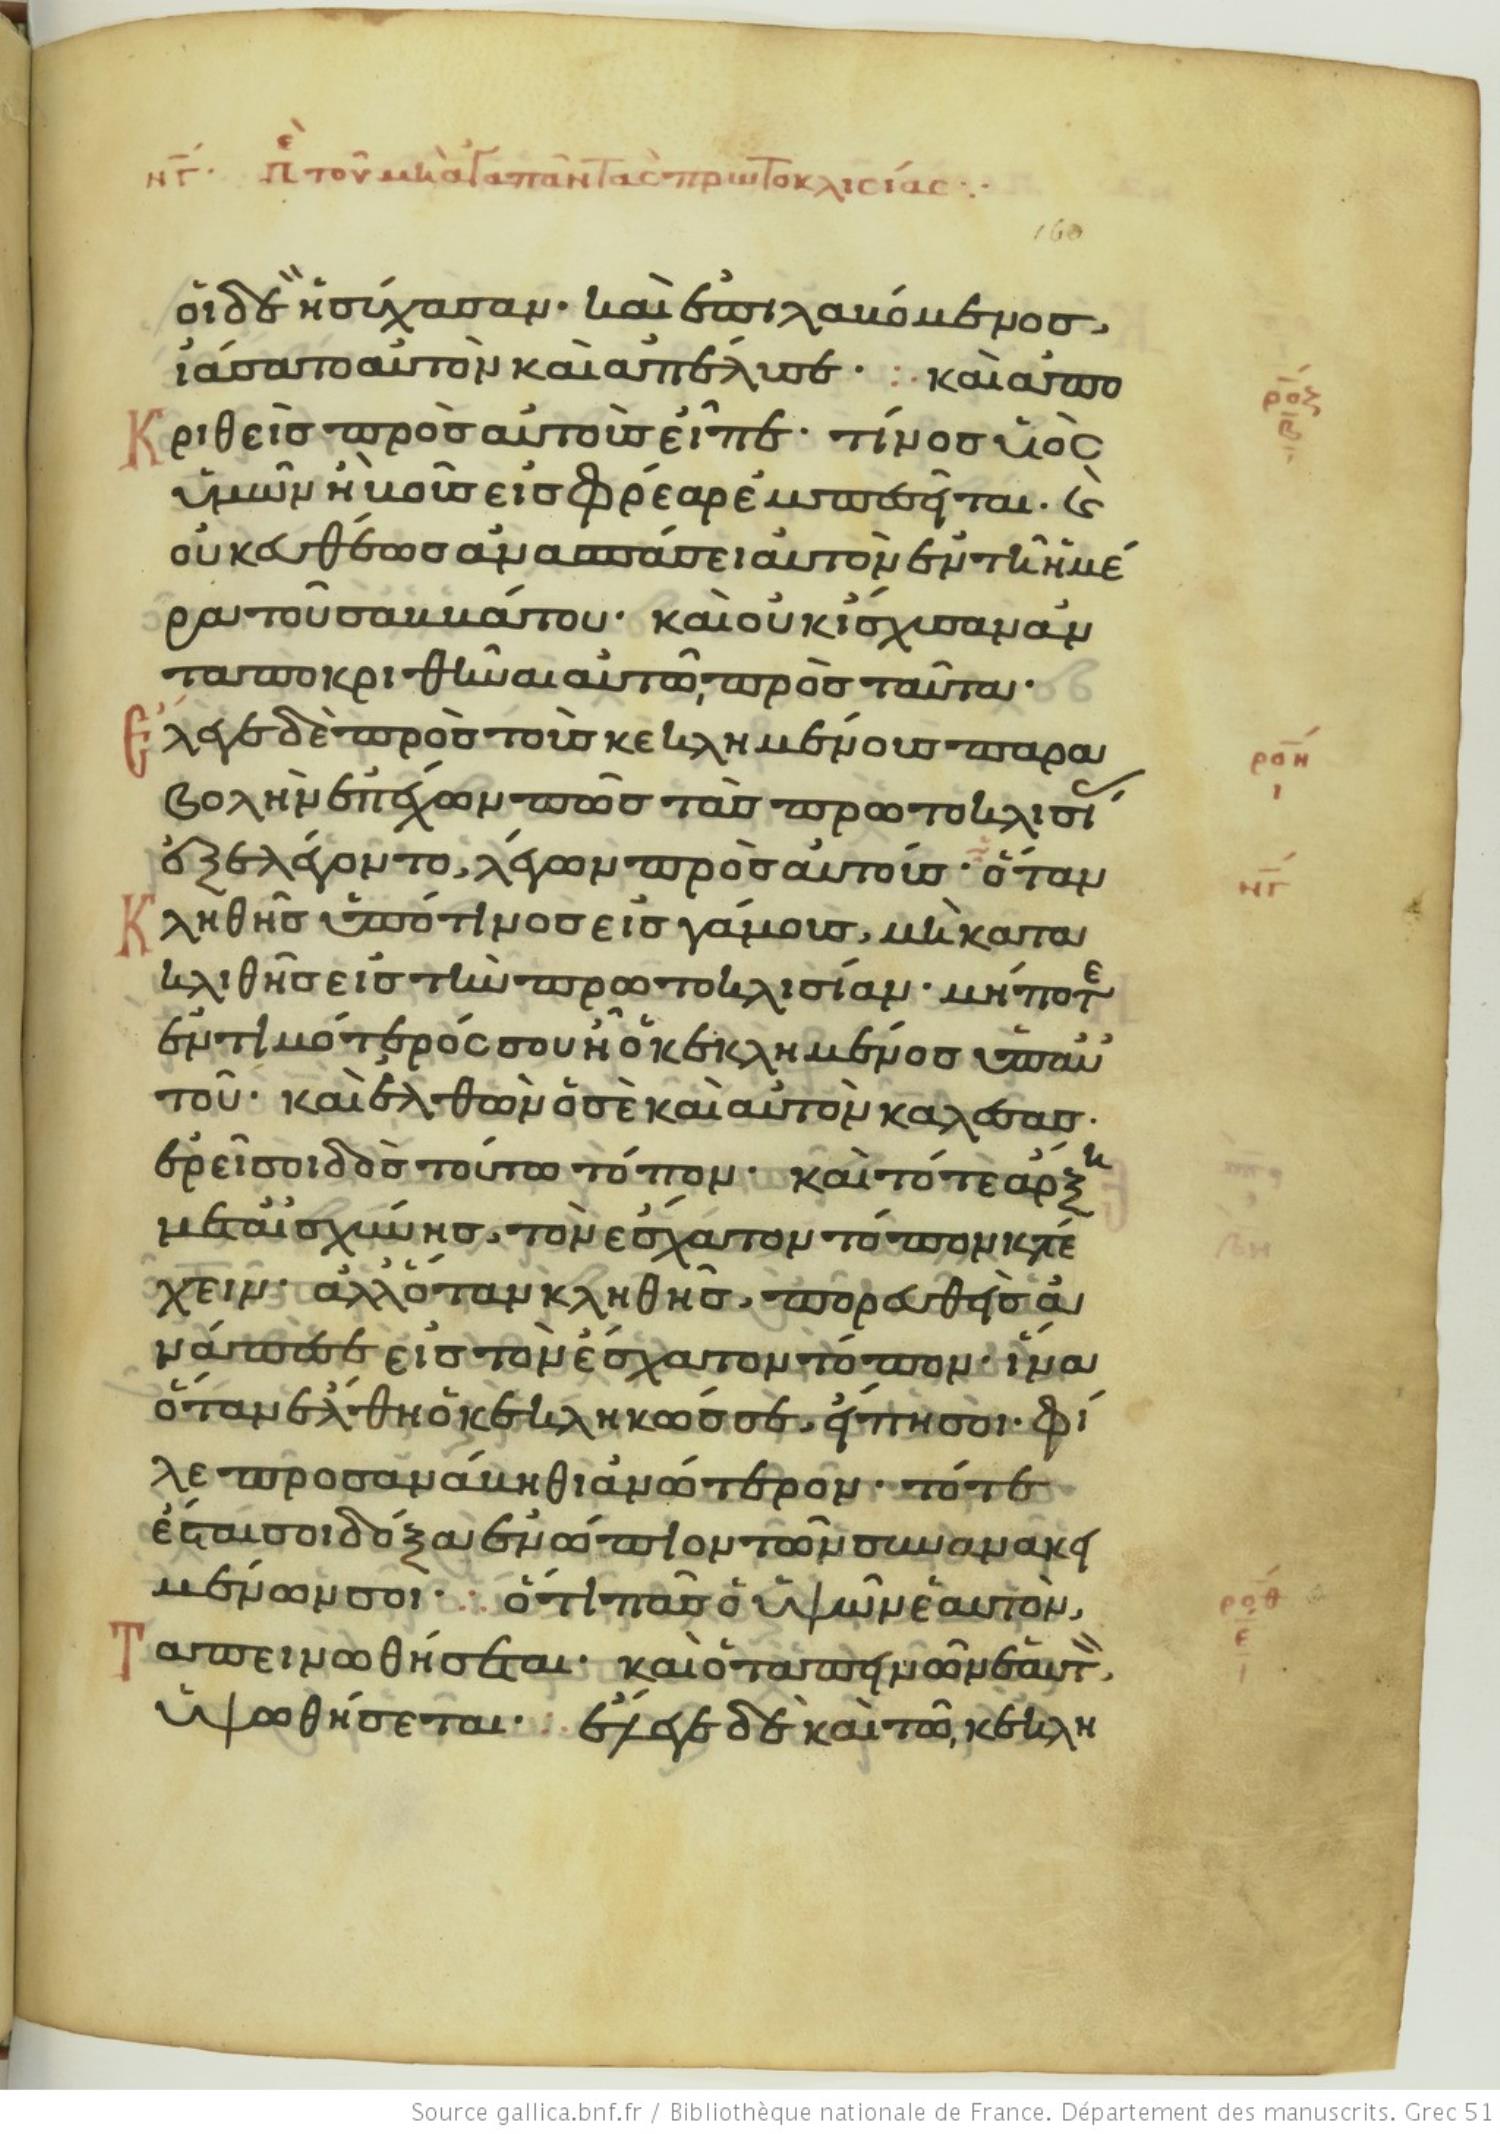 νγ. πε τοῦ μὴ ἀγαπᾶν τὰς πρωτοκλισίας
160
ὁι δὲ ἡσύχασαν· καὶ ἐπιλαβόμενος,
ἰάσατο αὐτὸν καὶ ἀπέλυσε· καὶ ἀπο
Κριθεὶς πρὸς αὐτοὺς εἶπε· τίνος ὑιὸς
ὑμῶν ἢ βοῦς εἰς φρέαρ ἐμπεσεῖται· καὶ
οὐκ εὐθέως ἀνασπάσει αὐτὸν ἐν τῆ ἡμέ
ρα τοῦ σαββάτου· καὶ οὐκ ἴσχυσαν ἀν
ταποκριθῆναι αὐτῶ, πρὸς ταῦτα·
Ἔλεγε δὲ πρὸς τοὺς κεκλημένους παρα
βολὴν ἐπέχων πῶς τὰς πρωτοκλισί
ἐξελέγοντο, λέγων πρὸς αὐτούς· ὅταν
Κληθῆς ὑπό τινος εἰς γάμους, μὴ κατα
κλιθῆς εἰς τὴν πρωτοκλισίαν· μήποτε
ἐντιμότερός σου ἦ ὁ κεκλημένος ὑπ αὐ
τοῦ· καὶ ἐλθὼν ὁ σὲ καὶ αὐτὸν καλέσας·
ἐρεῖ σοι δὸς τούτω τόπον· καὶ τότε ἄρξη
μετ αἰσχύνης, τὸν ἔσχατον τόπον κατέ
χειν· ἀλλ ὅταν κληθῆς, πορευθεὶς ἀ
νάπεσε εἰς τὸν ἔσχατον τόπον· ἵνα
ὅταν ἔλθη ὁ κεκληκώς σε, εἴπη σοι· φί
λε προσανάβηθι ἀνώτερον· τότε
ἔσται σοι δόξα ἐνώπιον τῶν συνανακει
μένων σοι· ὅτι πᾶς ὁ ὑψῶν ἑαυτὸν,
Ταπεινωθήσεται· καὶ ὁ ταπεινῶν ἑαυτ,
ὑψωθήσεται· ἔλεγε δὲ καὶ τῶ, κεκλη
ροζ
β
ροη
ι
νγ
ροθ
ε
Source gallica.bnf.fr / Bibliothèque nationale de France. Département des manuscrits. Grec 51